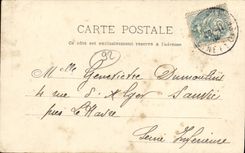 CARTE POSTALE
Ce côté est exclusivement réservé à l'adresse
92
Mlle Geneviève Dumoutier
4 rue d'Alger Sanvic
près le Havre
Seine Inférieure